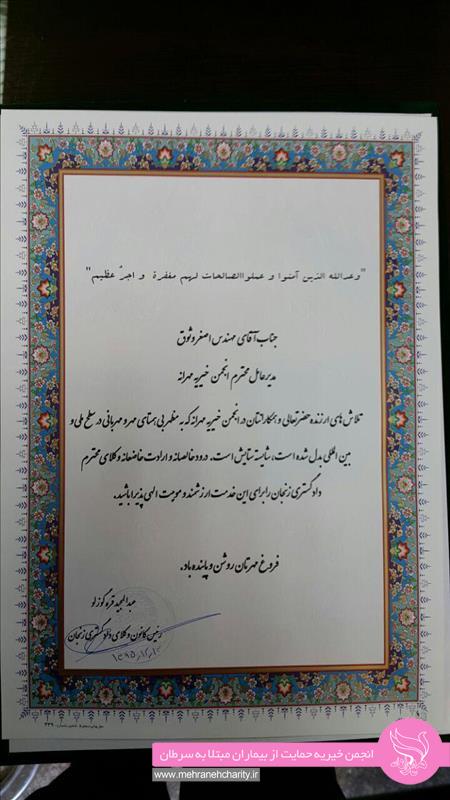 "وعدالله الذین آمنوا و عملواالصالحات لهم مغفرة و اجرٌ عظیم"
جناب آقای مهندس اصغر وثوق
مدیرعامل محترم انجمن خیریه مهرانه
تلاش های ارزنده حضرتعالی و همکارانتان در انجمن خیریه مهرانه که به مظهر بی همتای مهر و مهربانی در سطح ملی و
بین المللی بدل شده است، شایسته ستایش است. درود خالصانه و ارادت خاضعانه وکلای محترم
دادگستری زنجان را برای این خدمت ارزشمند و موهبت الهی پذیرا باشید.
فروغ مهرتان روشن و پاینده باد.
عبدالمجید قره گوزلو
رئیس کانون وکلای دادگستری زنجان
انجمن خیریه حمایت از بیماران مبتلا به سرطان
www.mehranehcharity.ir